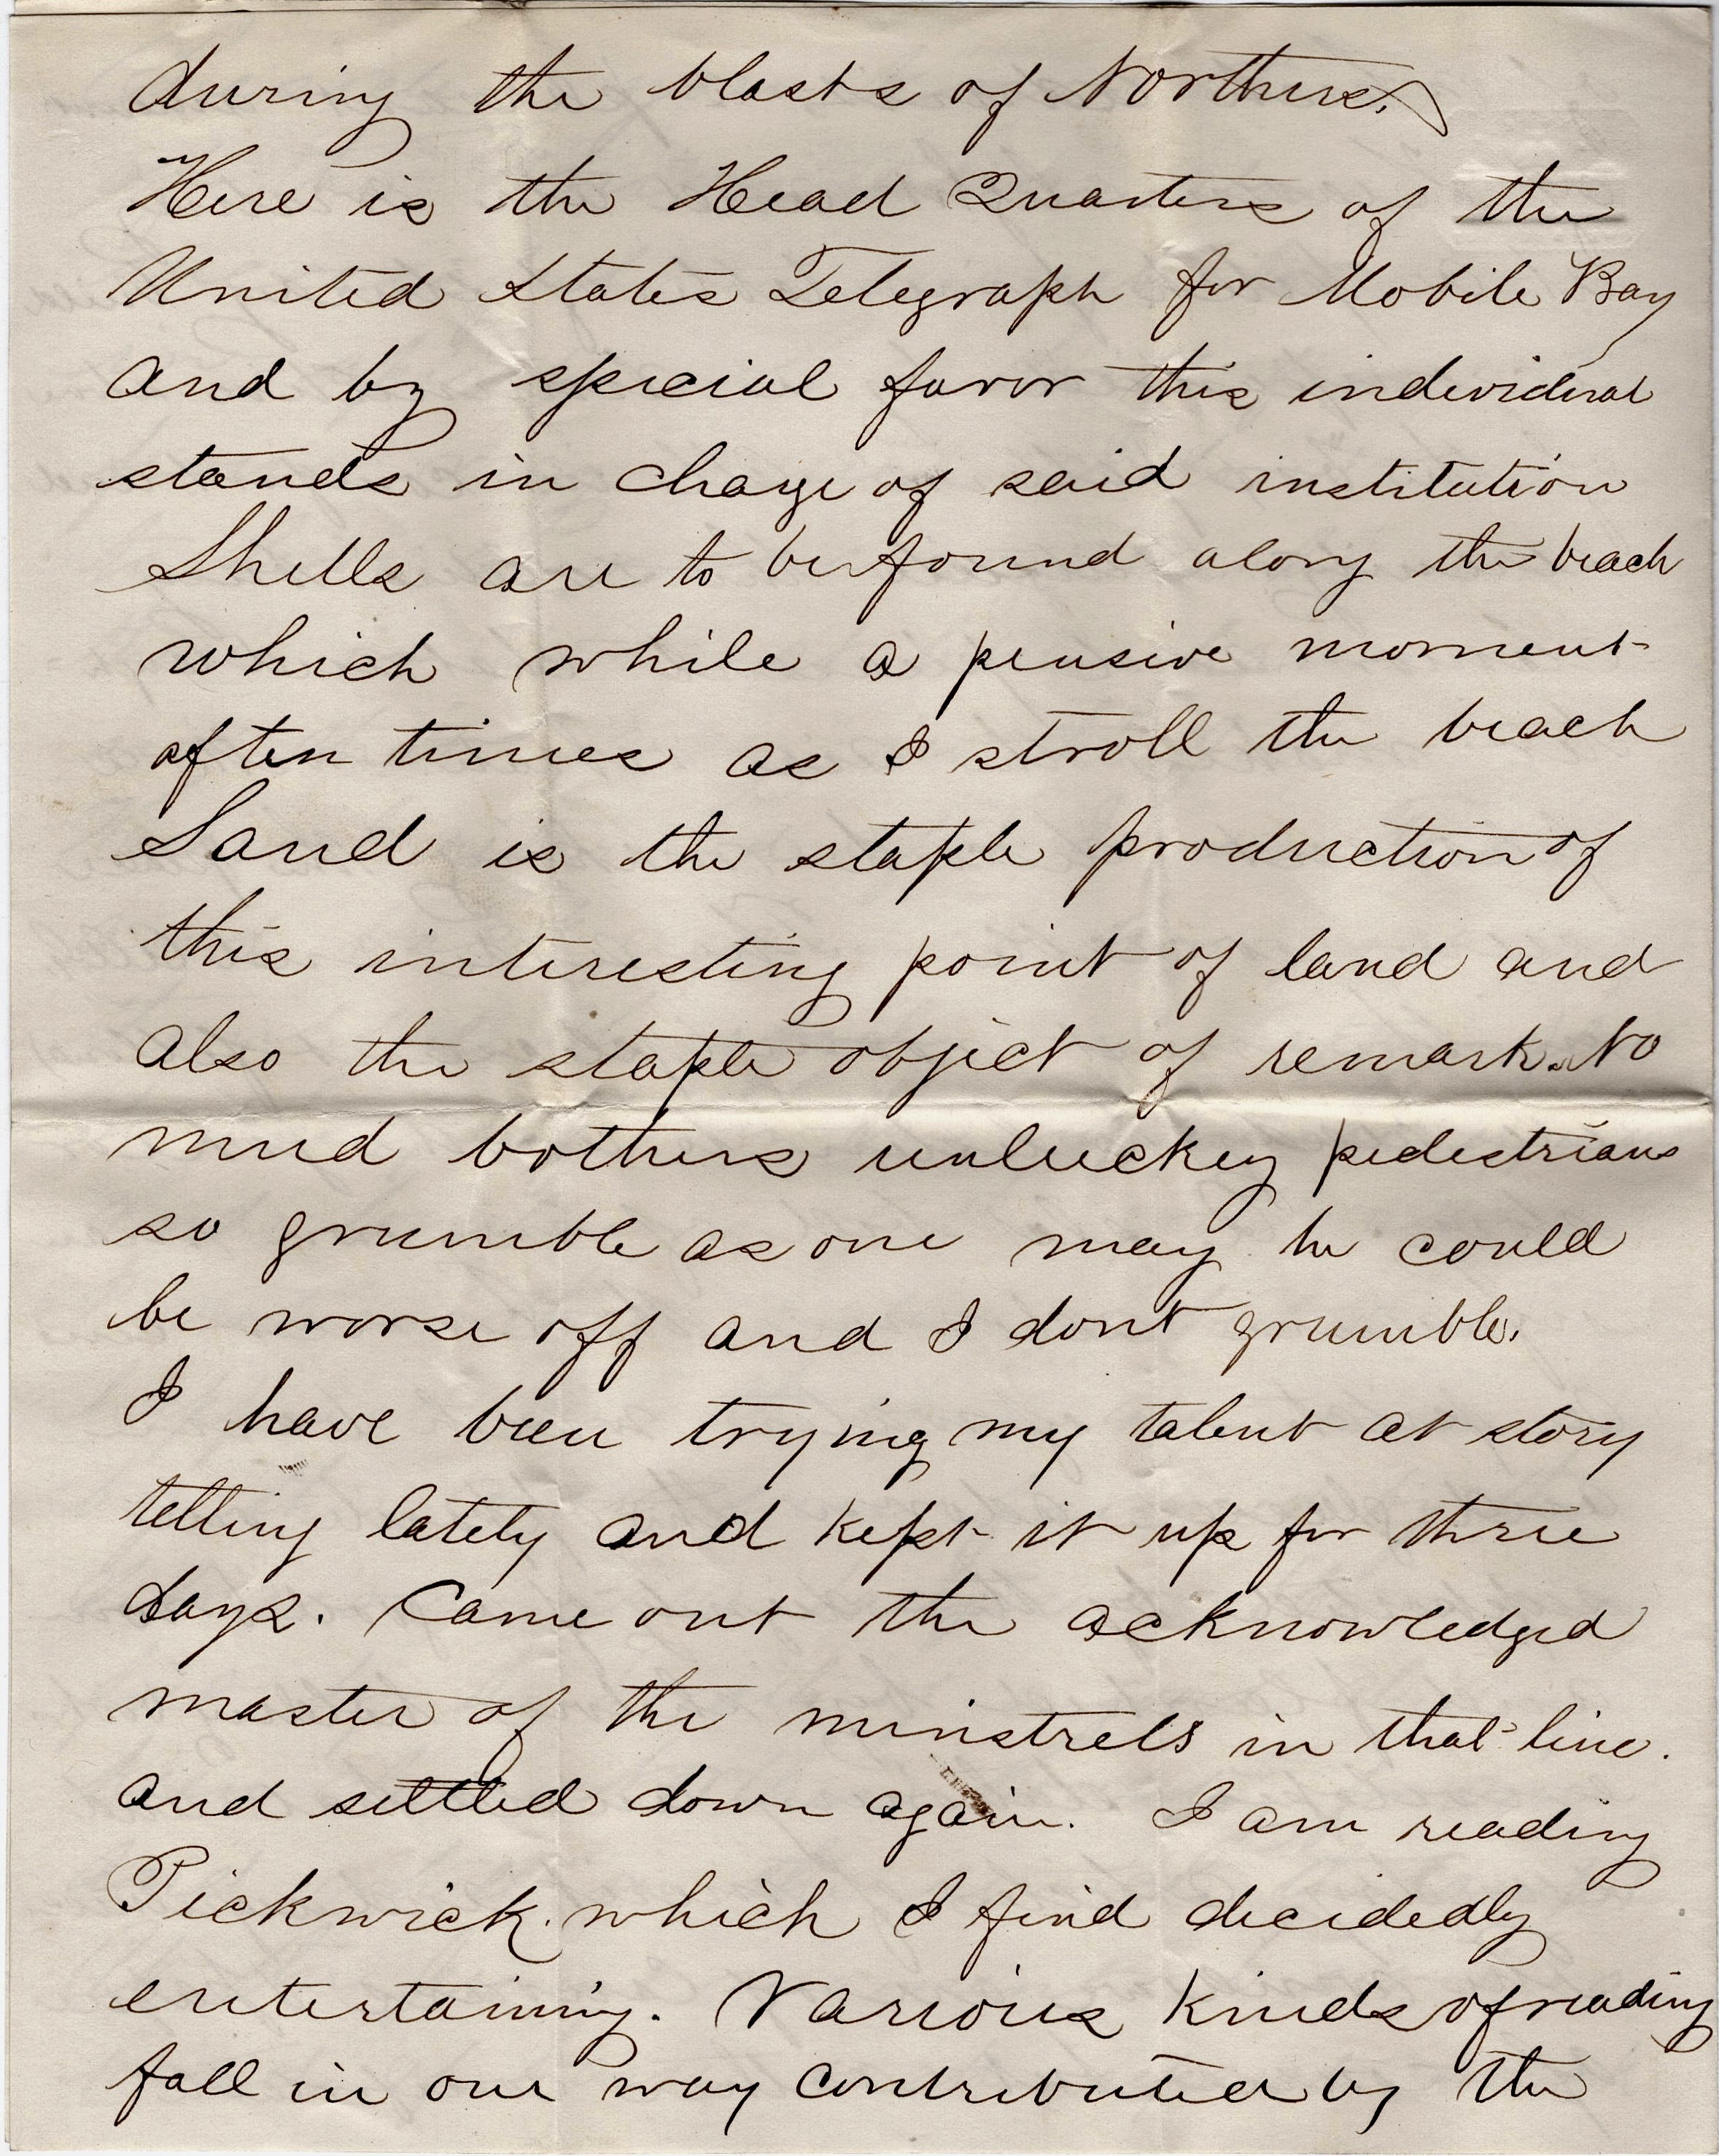 during the blasts of Northers.
Here is the Head Quarters of the
United States Telegraph for Mobile Bay
and by special favor this individual
stands in charge of said institution
Shells are to be found along the beach
which while a pensive moment
often times as I stroll the beach
Sand is the staple production of
this interesting point of land and
also the staple object of remark. No
mud bothers unluckey pedestrians
so grumble as one may he could
be worse off and I dont grumble.
I have been trying my talent at story
telling lately and kept it up for three
days. Came out the acknowledged
master of the minstrels in that line.
and settled down again. I am reading
Pickwick. which I find decidedly
entertaining. Various kinds of reading
fall in our way contributed by the